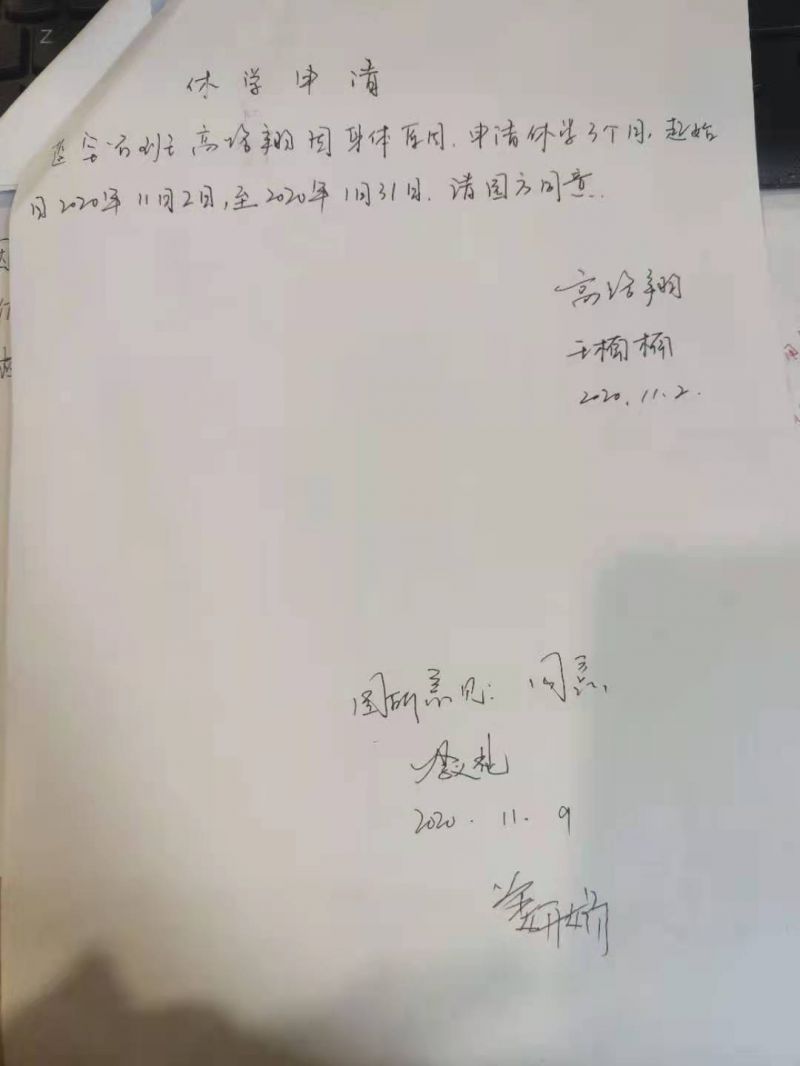 休学申请
高培翔因身体原因,申请休学3个月,起始
日2020年11月2日,至2020年1月31日.请园方同意.
高培翔
王楠楠
2020.11.2.
园所意见: 同意,
2020.11.9